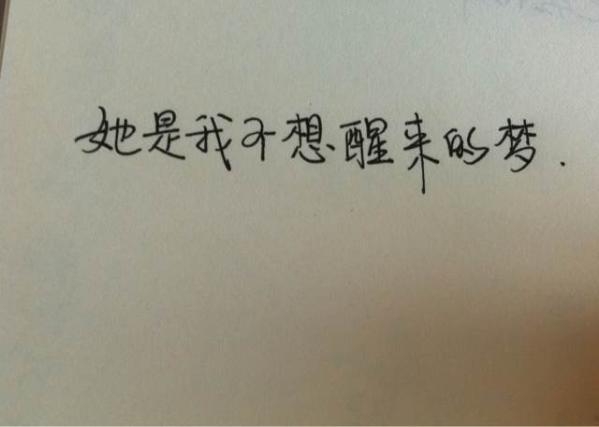 她是我不想醒来的梦.